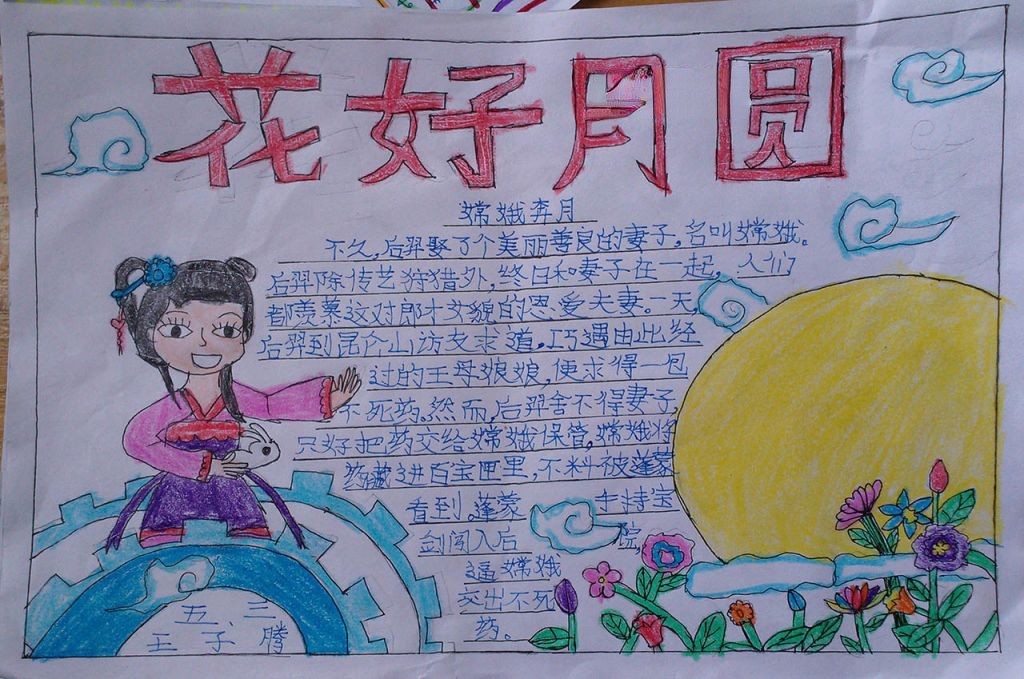 花好月圆
嫦娥奔月
不久,后羿娶了个美丽善良的妻子,名叫嫦娥。
后羿除传艺狩猎外,终日和妻子在一起,人们
都羡慕这对郎才女貌的恩爱夫妻。一天,
后羿到昆仑山访友求道,巧遇由此经
过的王母娘娘,便求得一包
不死药。然而,后羿舍不得妻子,
只好把药交给嫦娥保管,嫦娥将
药藏进百宝匣里,不料被蓬蒙
看到。蓬蒙 手持宝
剑闯入后 院,
逼嫦娥
交出不死
药。
五、三
王子腾